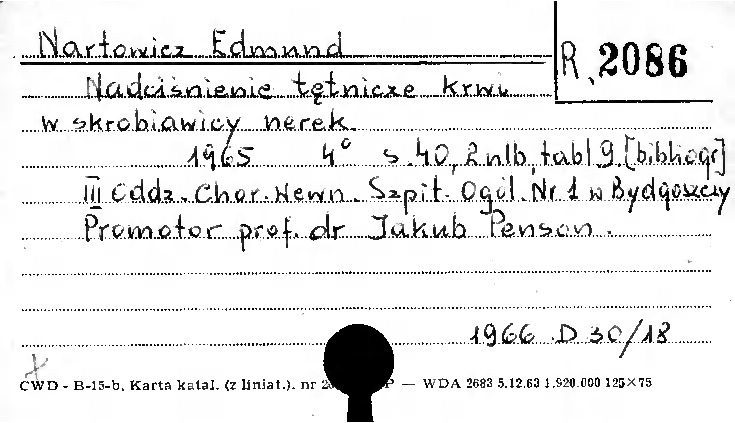 Nartowicz Edmund
R. 2086
Nadciśnienie tętnicze krwi
w skrobiawicy nerek.
1965 4° s. 40, 2 nlb, tabl 9. [bibliogr]
III Oddz. Chor. Wewn. Szpit. Ogól. Nr 1 w Bydgoszczy
Promotor prof. dr Jakub Penson.
1966 D 30/18
CWD - B-15-b. Karta katal. (z liniat.). nr P — WDA 2683 5.12.63 1.920.000 125×75